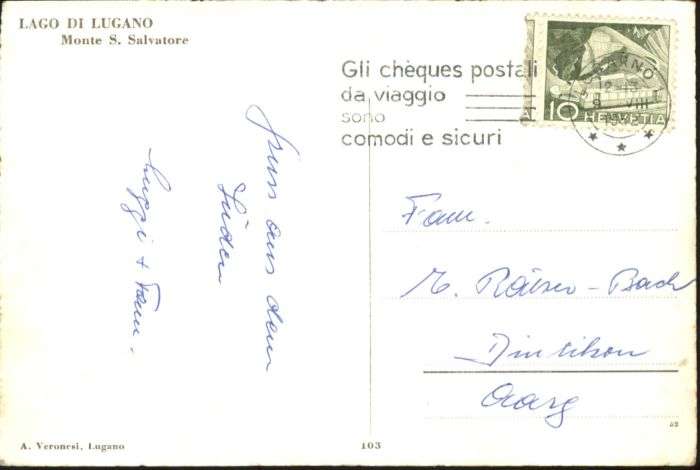 LAGO DI LUGANO
Monte S. Salvatore
Gli chèques postali
da viaggio
sono
comodi e sicuri
A 10 HELVETIA
12-13
VIII
Gruss aus dem
Süden
Luggi + Fam.
Fam.
Dintikon
Aarg
52
A. Veronesi, Lugano
103